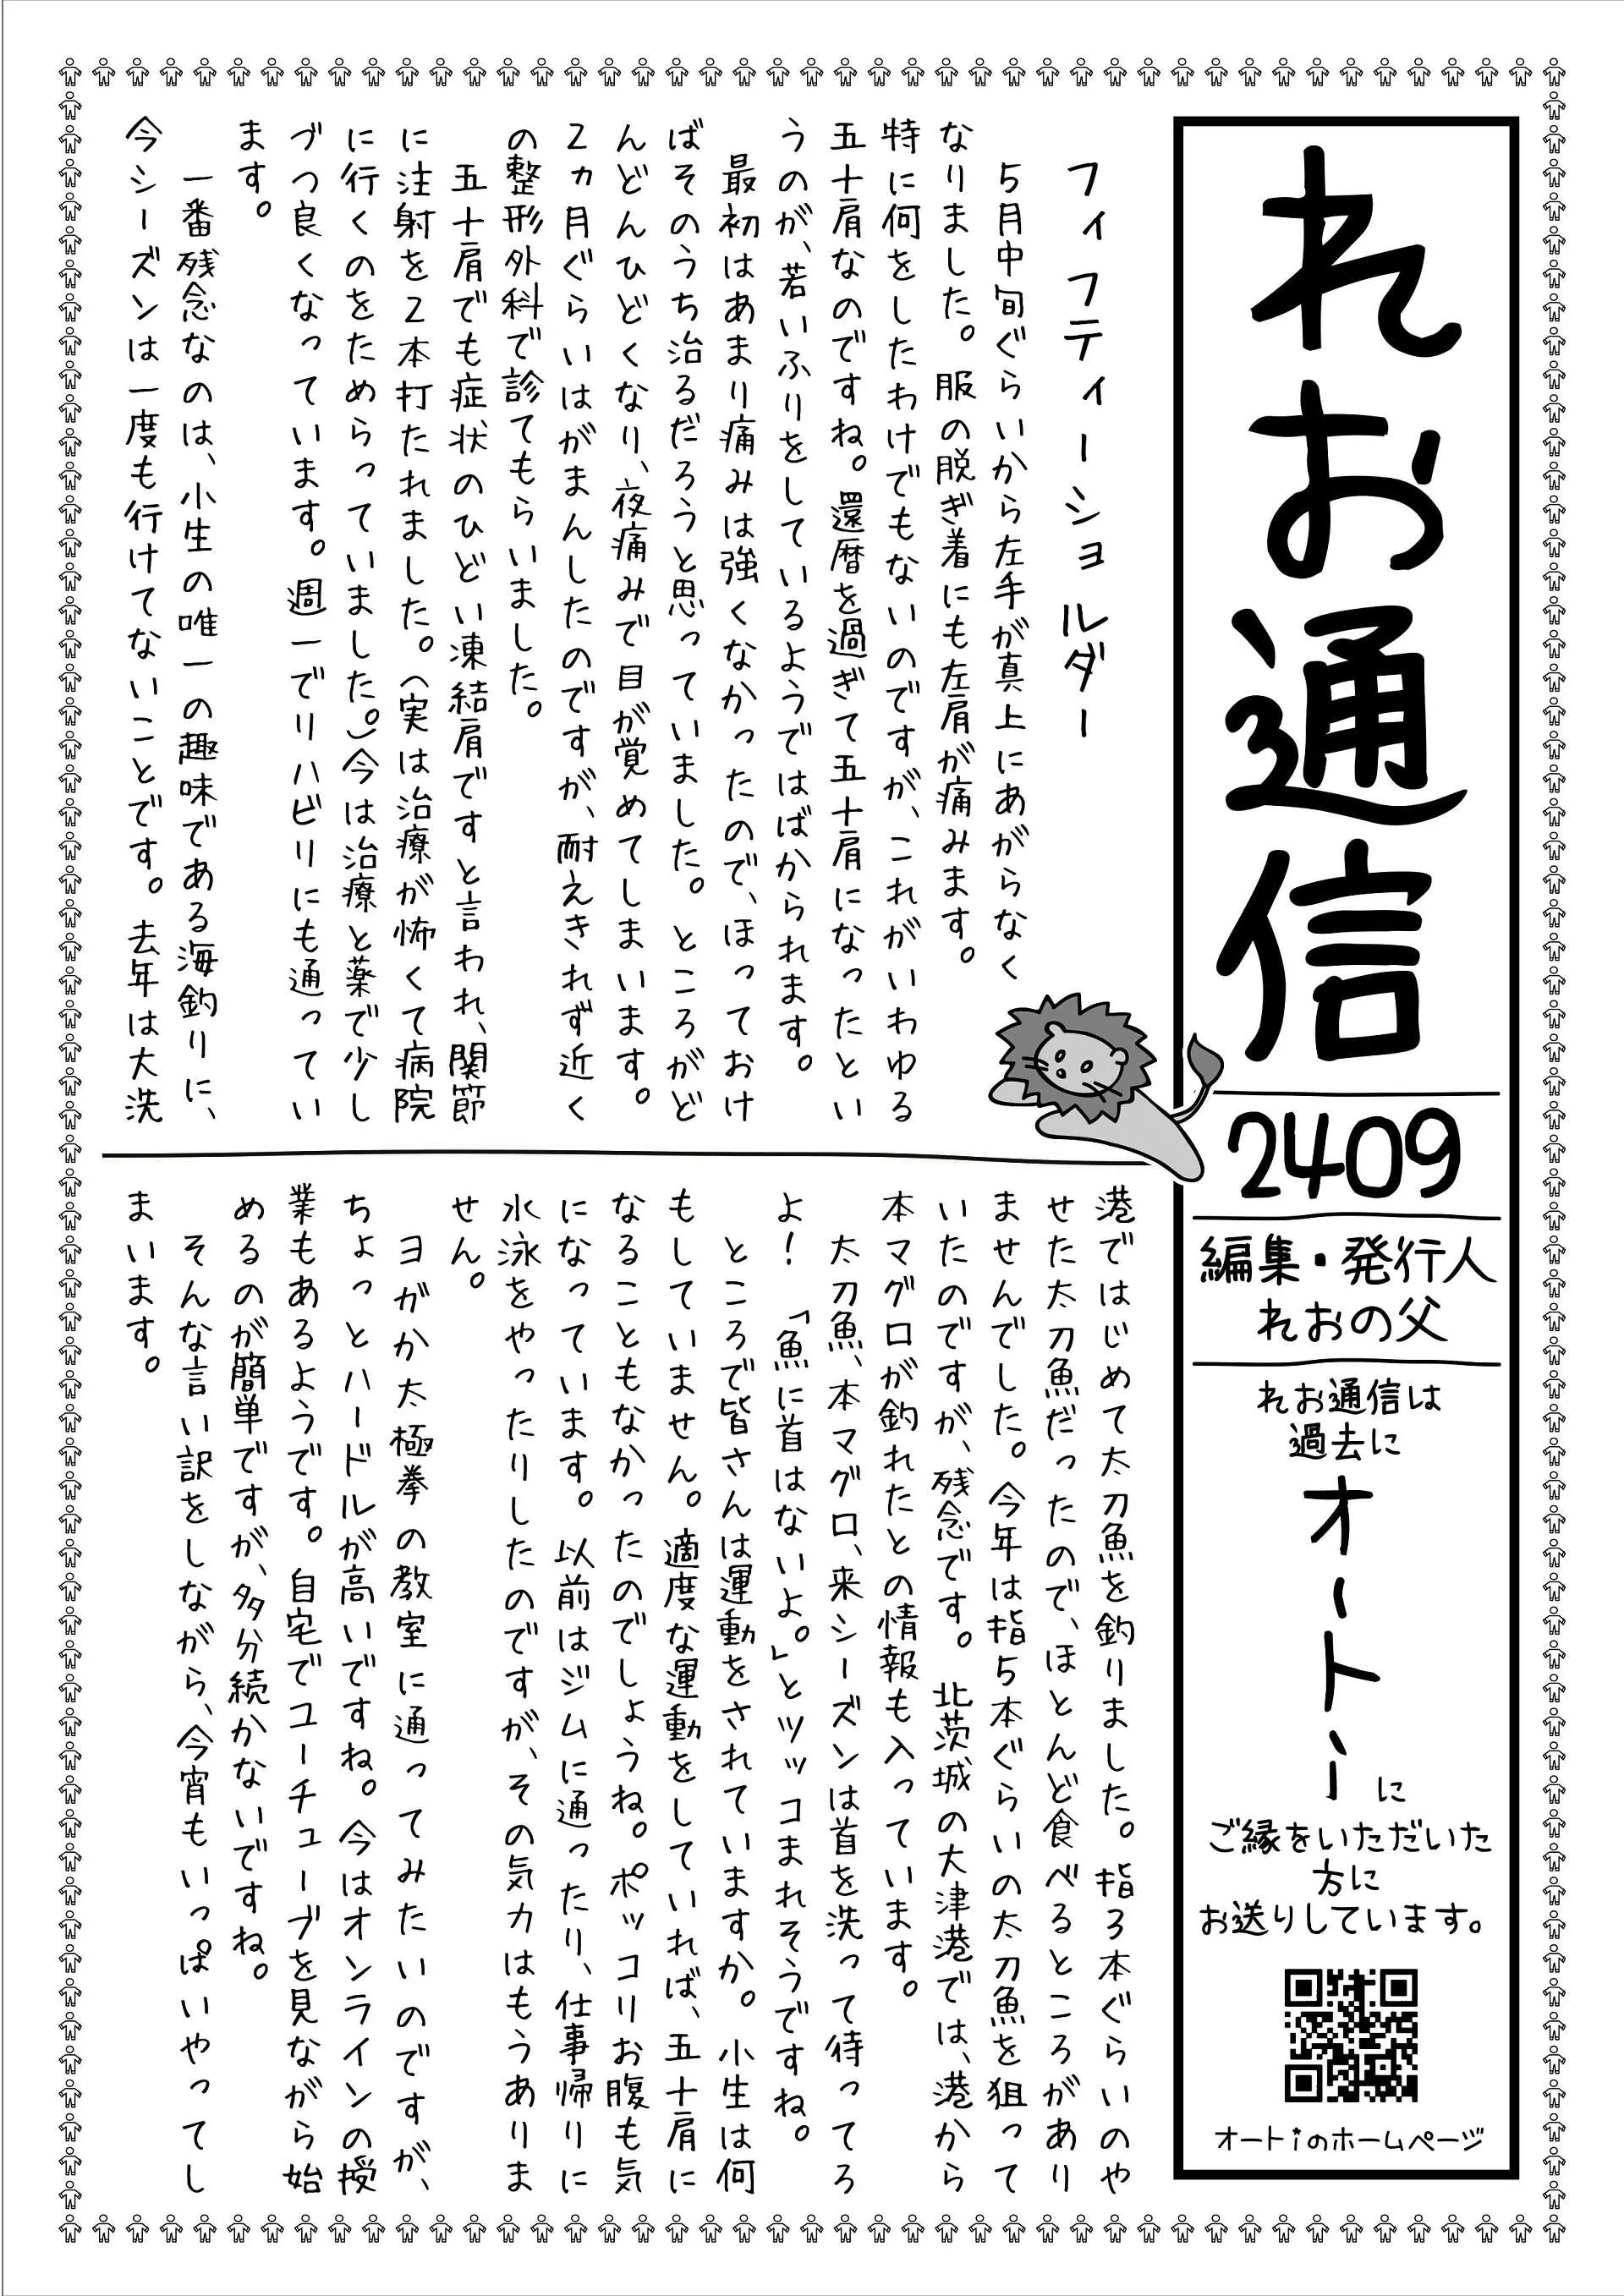 れお通信
2409
編集・発行人
れおの父
れお通信は
過去に
オートi
に
ご縁をいただいた
方に
お送りしています。
オートiのホームページ
フィフティーショルダー
５月中旬ぐらいから左手が真上にあがらなく
なりました。服の脱ぎ着にも左肩が痛みます。
特に何をしたわけでもないのですが、これがいわゆる
五十肩なのですね。還暦を過ぎて五十肩になったとい
うのが、若いふりをしているようではばかられます。
最初はあまり痛みは強くなかったので、ほっておけ
ばそのうち治るだろうと思っていました。ところがど
んどんひどくなり、夜痛みで目が覚めてしまいます。
２ヵ月ぐらいはがまんしたのですが、耐えきれず近く
の整形外科で診てもらいました。
五十肩でも症状のひどい凍結肩ですと言われ、関節
に注射を２本打たれました。（実は治療が怖くて病院
に行くのをためらっていました。）今は治療と薬で少し
づつ良くなっています。週一でリハビリにも通ってい
ます。
一番残念なのは、小生の唯一の趣味である海釣りに、
今シーズンは一度も行けてないことです。去年は大洗
港ではじめて太刀魚を釣りました。指３本ぐらいのや
せた太刀魚だったので、ほとんど食べるところがあり
ませんでした。今年は指５本ぐらいの太刀魚を狙って
いたのですが、残念です。北茨城の大津港では、港から
本マグロが釣れたとの情報も入っています。
太刀魚、本マグロ、来シーズンは首を洗って待ってろ
よ！「魚に首はないよ。」とツッコまれそうですね。
ところで皆さんは運動をされていますか。小生は何
もしていません。適度な運動をしていれば、五十肩に
なることもなかったのでしょうね。ポッコリお腹も気
になっています。以前はジムに通ったり、仕事帰りに
水泳をやったりしたのですが、その気力はもうありま
せん。
ヨガか太極拳の教室に通ってみたいのですが、
ちょっとハードルが高いですね。今はオンラインの授
業もあるようです。自宅でユーチューブを見ながら始
めるのが簡単ですが、多分続かないですね。
そんな言い訳をしながら、今宵もいっぱいやってし
まいます。